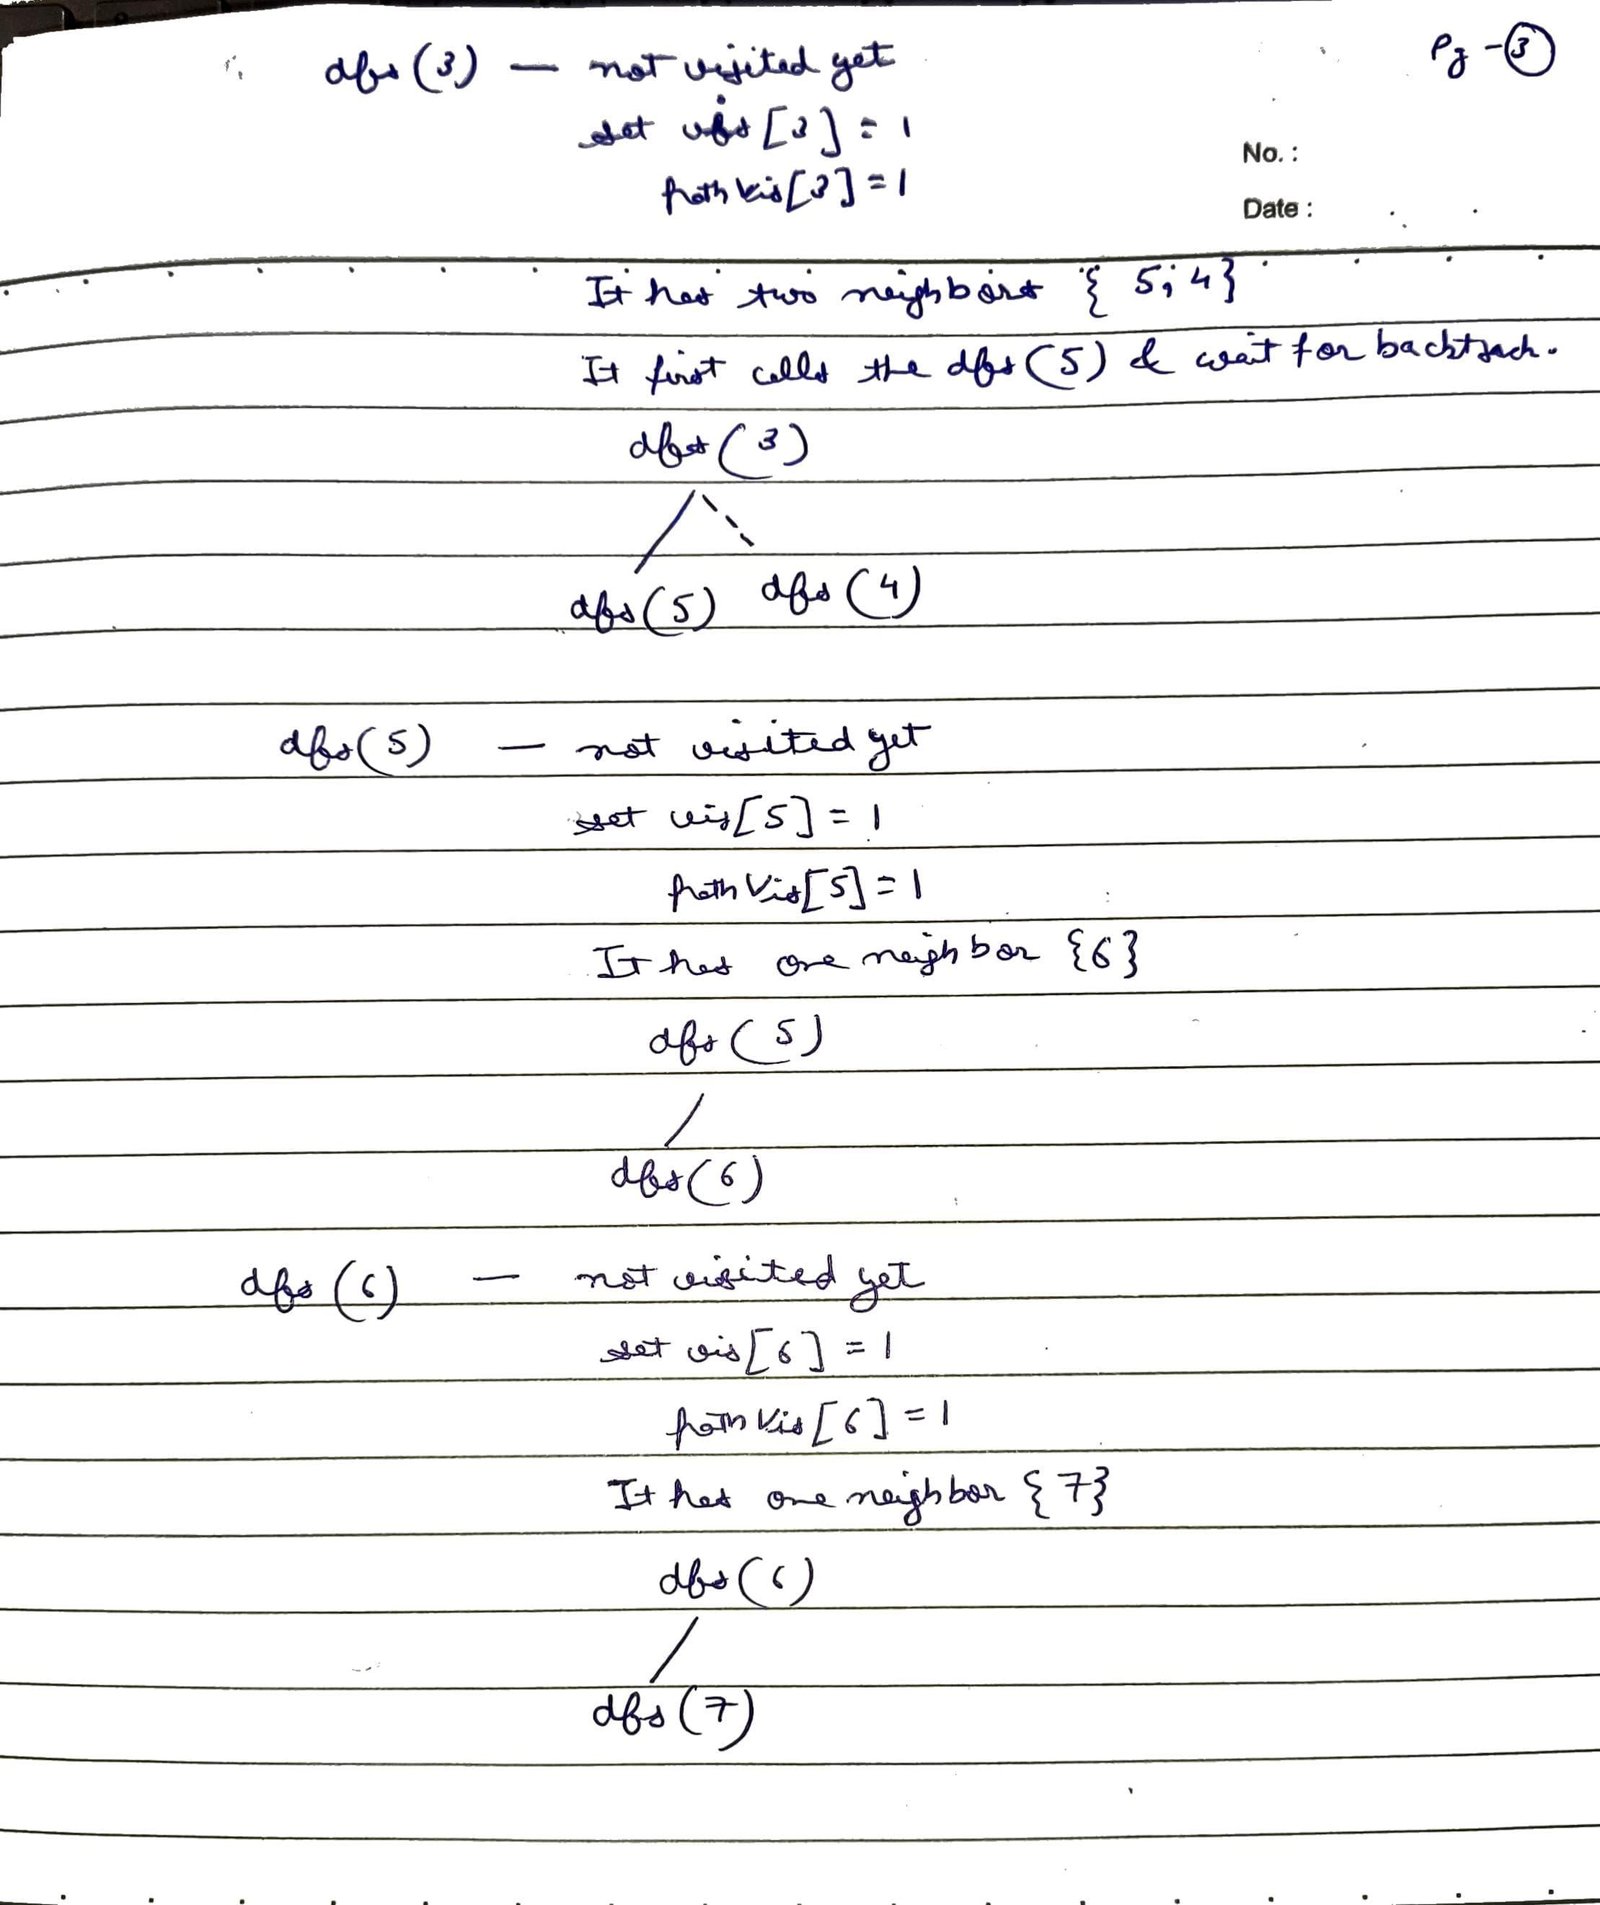 Pg - 3
dfs(3) — not visited yet
set vis[3] = 1
pathVis[3] = 1
No. :
Date :
It has two neighbors { 5, 4}
It first calls the dfs(5) & wait for backtrack.
dfs(3)
dfs(5) dfs(4)
dfs(5) — not visited yet
set vis[5] = 1
pathVis[5] = 1
It has one neighbor {6}
dfs(5)
dfs(6)
dfs(6) — not visited yet
set vis[6] = 1
pathVis[6] = 1
It has one neighbor {7}
dfs(6)
dfs(7)